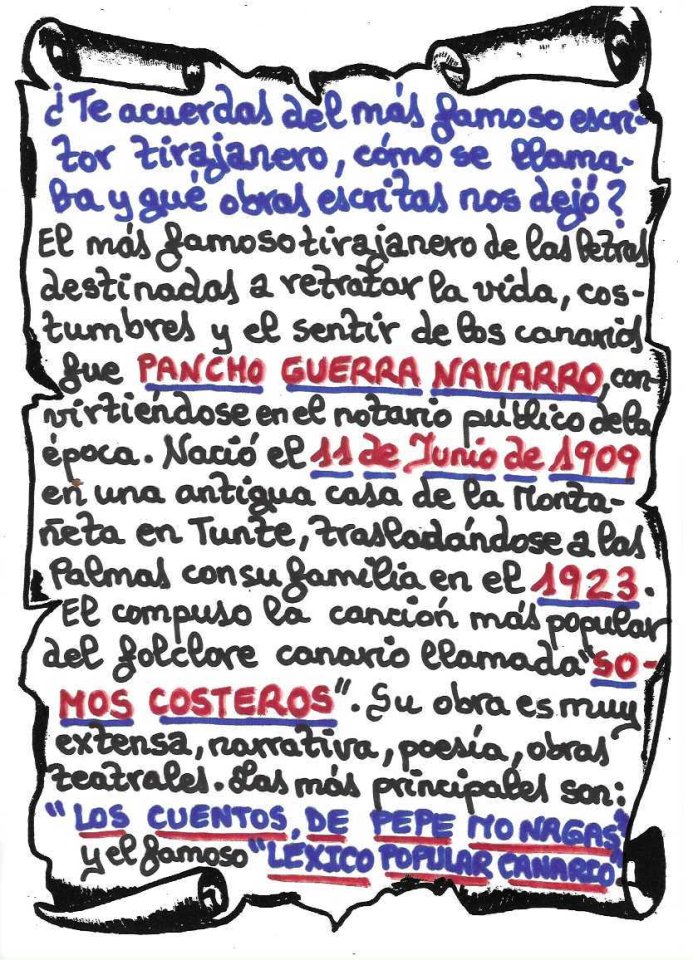 ¿Te acuerdas del más famoso escri-
tor tirajanero, cómo se llama-
ba y qué obras escritas nos dejó?
El más famoso tirajanero de las letras
destinadas a retratar la vida, cos-
tumbres y el sentir de los canarios
fue PANCHO GUERRA NAVARRO, con-
virtiéndose en el notario público de la
época. Nació el 11 de Junio de 1909
en una antigua casa de la Monta-
ñeta en Tunte, trasladándose a las
Palmas con su familia en el 1923.
El compuso la canción más popular
del folclore canario llamada "SO-
MOS COSTEROS". Su obra es muy
extensa, narrativa, poesía, obras
teatrales. Las más principales son:
"LOS CUENTOS DE PEPE MONAGAS"
y el famoso "LÉXICO POPULAR CANARIO"